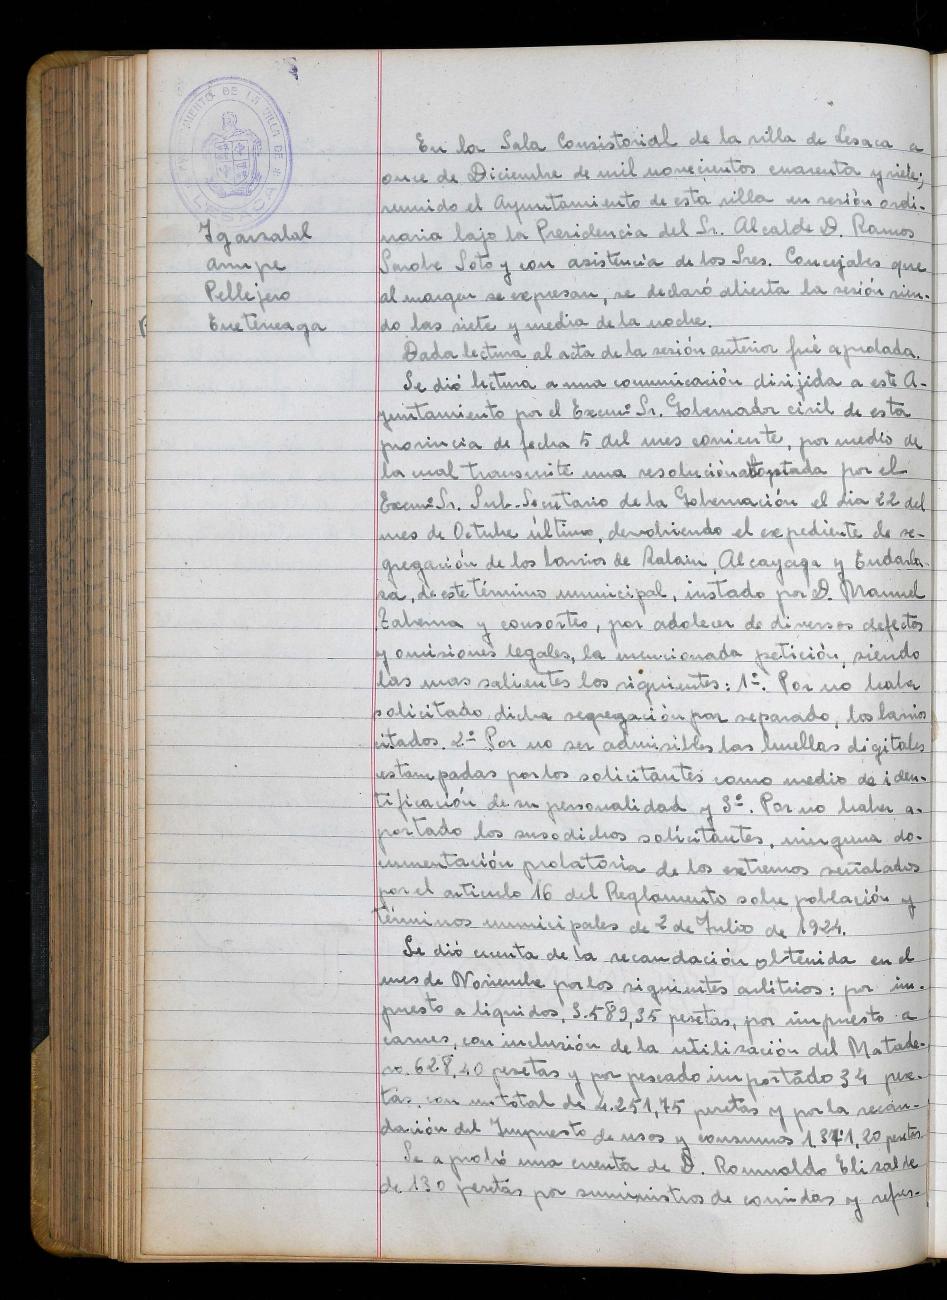 AYUNTAMIENTO DE LA VILLA DE LESACA
Igarzabal
Arrupe
Pellejero
Erreteneaga
En la Sala Consistorial de la villa de Lesaca a
once de Diciembre de mil novecientos cuarenta y siete;
reunido el Ayuntamiento de esta villa en sesión ordi-
naria bajo la Presidencia del Sr. Alcalde D. Ramos
Sarobe Soto y con asistencia de los Sres. Concejales que
al margen se expresan, se declaró abierta la sesión sien-
do las siete y media de la noche.
Dada lectura al acta de la sesión anterior fué aprobada.
Se dió lectura a una comunicación dirijida a este A-
yuntamiento por el Excmo Sr. Gobernador civil de esta
provincia de fecha 5 del mes corriente, por medio de
la cual transmite una resolución adoptada por el
Excmo Sr. Sub-Secretario de la Gobernación el dia 22 del
mes de Octubre último, devolviendo el expediente de se-
gregación de los barrios de Zalain, Alcayaga y Endarla-
za, de este término municipal, instado por D. Manuel
Taberna y consortes, por adolecer de diversos defectos
y omisiones legales, la mencionada petición, siendo
las mas salientes los siguientes: 1º. Por no haber
solicitado dicha segregación por separado, los barrios
citados. 2º Por no ser admisibles las huellas digitales
estampadas por los solicitantes como medio de iden-
tificación de su personalidad y 3º. Por no haber a-
portado los susodichos solicitantes, ninguna do-
cumentación probatoria de los extremos señalados
por el articulo 16 del Reglamento sobre población y
términos municipales de 2 de Julio de 1924.
Se dió cuenta de la recaudación obtenida en el
mes de Noviembre por los siguientes arbitrios: por im-
puesto a liquidos, 3.589,35 pesetas, por impuesto a
carnes, con inclusión de la utilización del Matade-
ro. 628,40 pesetas y por pescado importado 34 pese-
tas, con un total de 4.251,75 pesetas y por la recau-
dación del Impuesto de usos y consumos 1.341,20 pesetas
Se aprobó una cuenta de D. Romualdo Elizalde
de 130 pesetas por suministros de comidas y refres-